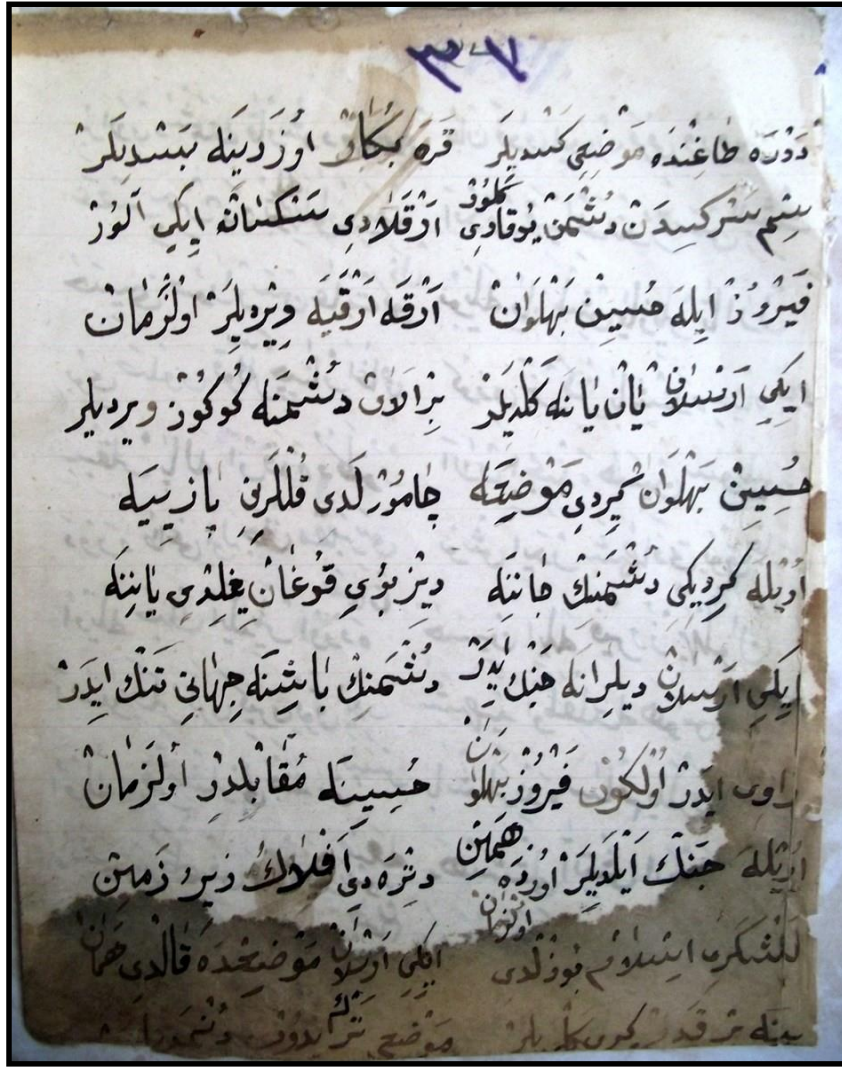 ٧٣
دوره طاغنده موضعی کسدیلر قره بکار اوزرینه بسدیلر
ستم سرکسدن دشمن یوقادی کلور ارقلادی سنکساته ایکی آلور
فیروز ایله حسین بهلوان آرقه آرقیه ویردیلر اولزمان
ایکی ارسلان یان یانه کلدیلر بر الای دشمنه کوکوز ویردیلر
حسین بهلوان کیردی موضعه چامورلدی قللرنی یازییه
اویله کیردیکی دشمنك جاننه دیز بویی قوغان یغلدی یاننه
ایکی ارسلان دیلرانه جنك ایدر دشمنك باشینه جهانی تنك ایدر
راوی ایدر اولکون فیروز بهلوان حسینه مقابلدر اولزمان
اویله جنك ایلدیلر اورده همین دتره دی افلاك زیر زمین
لشکر اسلام بوزلدی اوکون ایکی ارسلان موضعده قالدی همان
ینه موضعی